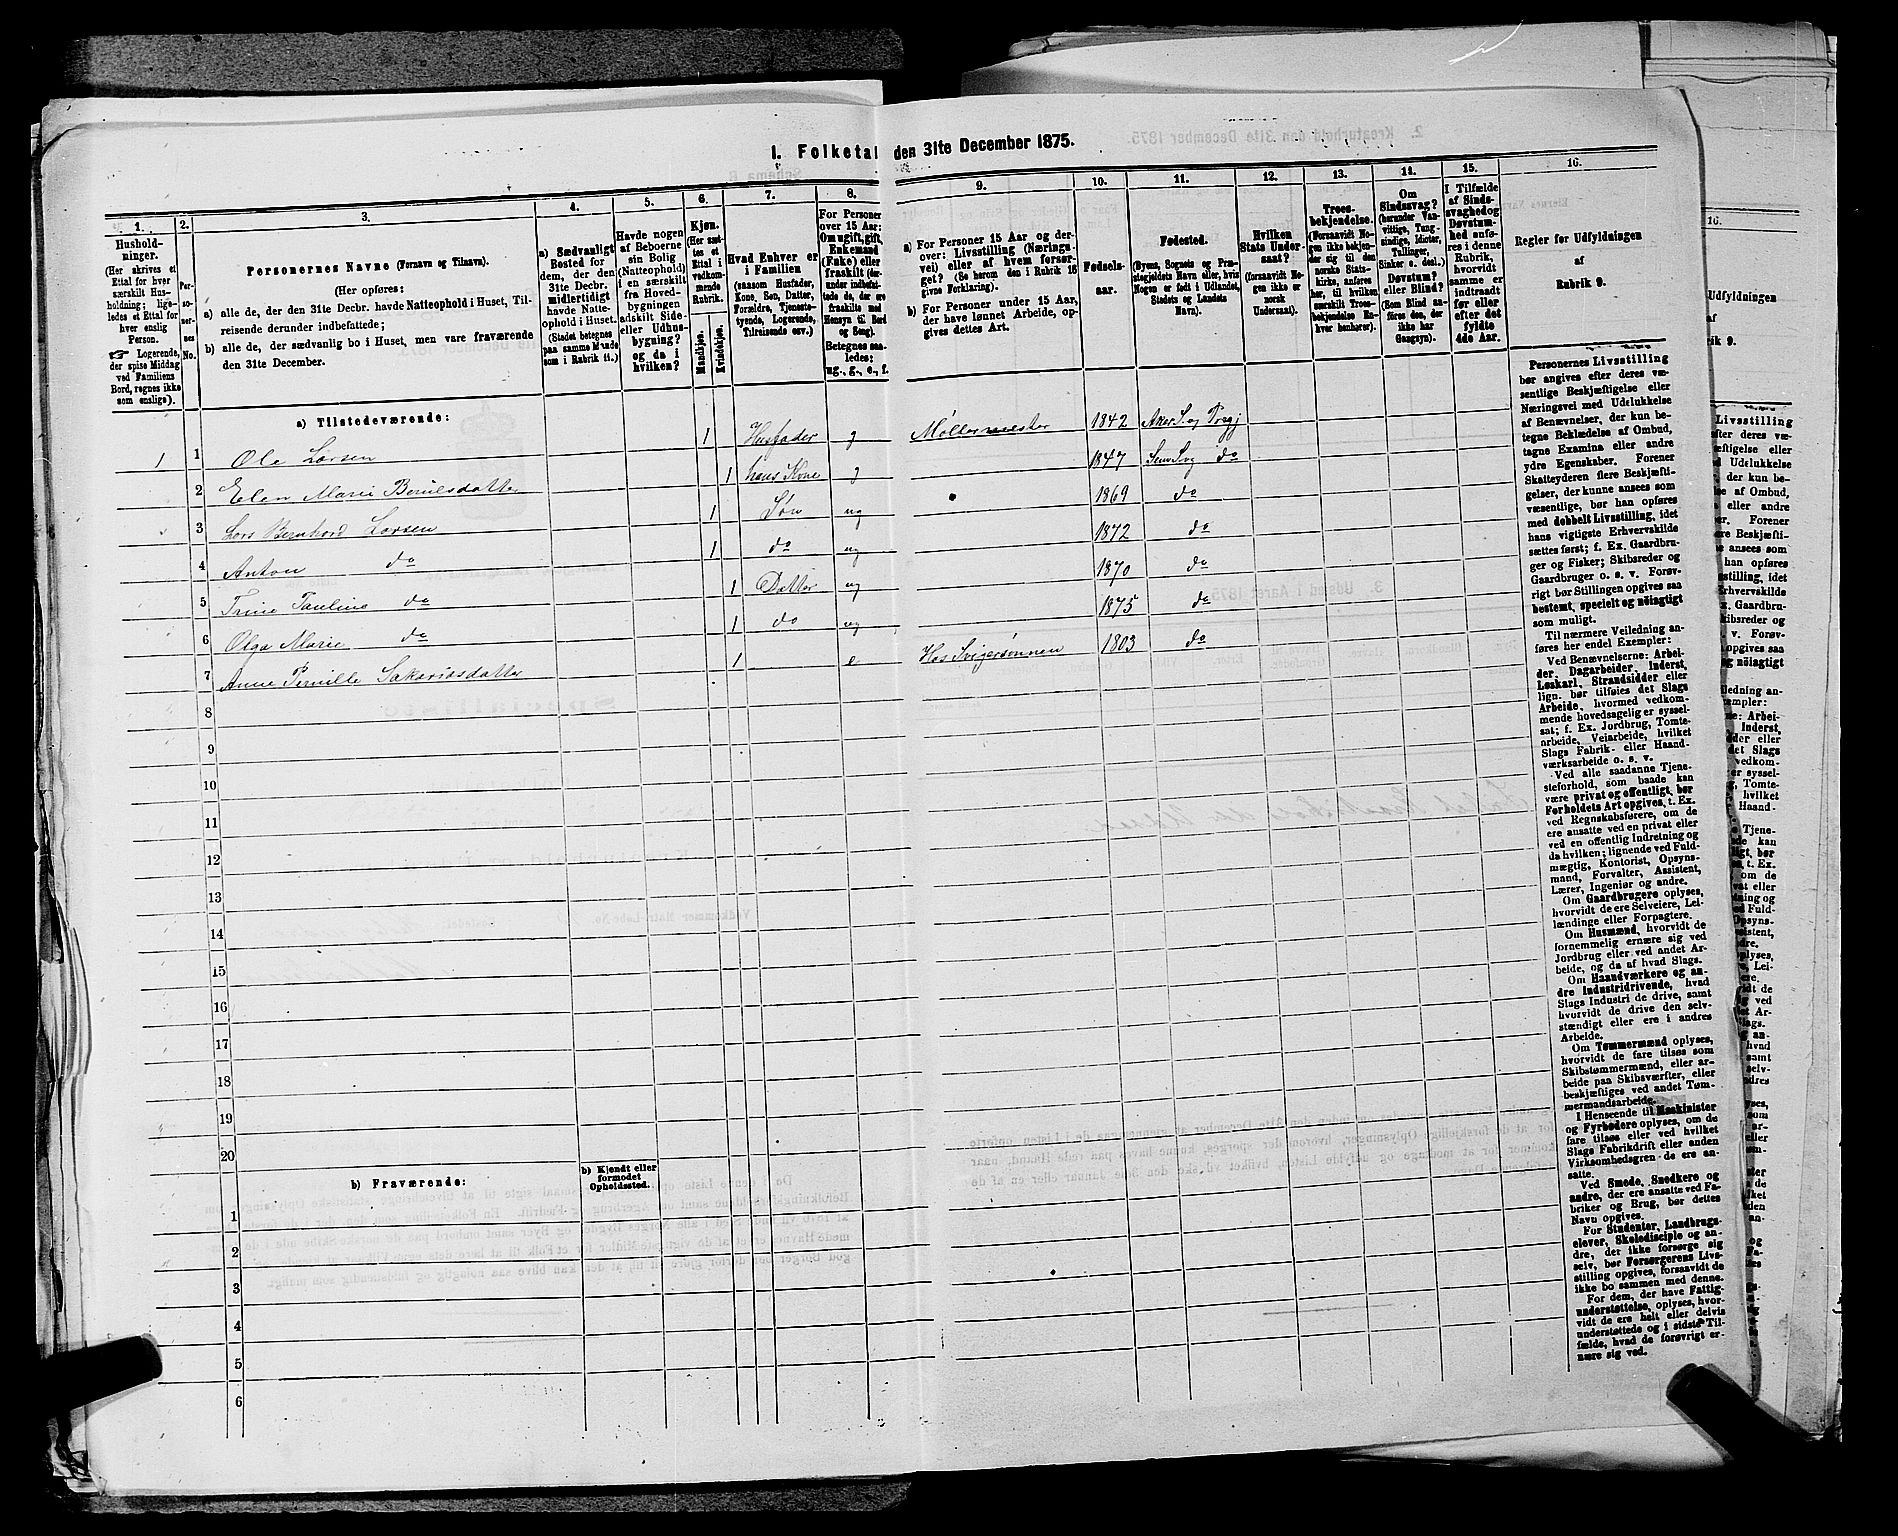 1. Folketal den 31te December 1875.
1.
Hushold-
ninger.
(Her skrives et
Ettal for hver
særskilt Hus-
holdning; lige-
ledes et Ettal for
hver enslig
Person.
☞ Logerende,
der spise Middag
ved Familiens
Bord, regnes ikke
som enslige).
2.
Per-
so-
ner-
nes
No.
3.
Personernes Navne (Fornavn og Tilnavn).
(Her opføres:
a) alle de, der den 31te Decbr. havde Natteophold i Huset, Til-
reisende derunder indbefattede;
b) alle de, der sædvanlig bo i Huset, men vare fraværende
den 31te December.
4.
a) Sædvanligt
Bosted for
dem, der den
31te Decbr.
midlertidigt
havde Natte-
ophold i Huset.
(Stedet betegnes
paa samme Maade
som i Rubrik 11.)
5.
Havde nogen
af Beboerne
sin Bolig
(Natteophold)
i en særskilt
fra Hoved-
bygningen
adskilt Side-
eller Udhus-
bygning?
og da i
hvilken?
6.
Kjøn.
(Her sæt-
tes et
Ettal i
vedkom-
mende
Rubrik.
Mandkjøn.
Kvindekjøn.
7.
Hvad Enhver er
i Familien
(saasom Husfader,
Kone, Søn, Datter,
Forældre, Tjeneste-
tyende, Logerende,
Tilreisende osv.)
8.
For Personer
over 15 Aar:
Om ugift, gift,
Enkemand
(Enke) eller
fraskilt (der-
under indbefat-
tede de, der ere
fraskilte med
Hensyn til Bord
og Seng).
Betegnes saa-
ledes:
ug., g., e., f.
9.
a) For Personer 15 Aar og der-
over: Livsstilling (Nærings-
vei) eller af hvem forsør-
get? (Se herom den i Rubrik 16
givne Forklaring).
b) For Personer under 15 Aar,
der have lønnet Arbeide, op-
gives dettes Art.
10.
Fødsels-
aar.
11.
Fødested.
(Byens, Sognets og Præ-
stegjeldets Navn eller, hvis
Nogen er født i Udlandet,
Stedets og Landets
Navn).
12.
Hvilken
Stats Under-
saat?
(forsaavidt No-
gen ikke er
norsk
Undersaat).
13.
Troes-
bekjendelse.
(Forsaavidt No-
gen ikke bekjen-
der sig til den
norske Stats-
kirke, anføres
her, til hvilken
særskilt Troes-
bekjendelse En-
hver henhører).
14.
Om
Sindssvag?
(herunder Van-
vittige, Tung-
sindige, Idioter,
Tullinger,
Sinker o. desl.)
Døvstum?
eller Blind?
(Som Blind an-
føres den, der
ikke har
Gangsyn).
15.
I Tilfælde
af Sinds-
svaghed og
Døvstum-
hed anfø-
res i denne
Rubrik,
hvorvidt
samme er
indtraadt
før eller
efter det
fyldte
4de Aar.
16.
Regler for Udfyldningen
af
Rubrik 9.
a) Tilstedeværende:
1 1 Ole Larsen 1 Husfader g Møllermester 1842 Aker S. og Prgj
2 Elen Marie 1 hans Kone g 1847 Sem Svg do
3 Lars Bernhard Larsen 1 Søn ug 1869 do
4 Anton do 1 do ug 1872 do
5 Trine Pauline do 1 Datter ug 1870 do
6 Olga Marie do 1 do ug 1875 do
7 Anne Pernille Sakariasdatter 1 e Hos Svigersønnen 1803 do
8
9
10
11
12
13
14
15
16
17
18
19
20
b) Fraværende:
b) Kjendt eller
formodet
Opholdssted.
1
2
3
4
5
6
Personernes Livsstilling
bør angives efter deres væ-
sentlige Beskjæftigelse eller
Næringsvei med Udelukkelse
af Benævnelser, der kun be-
tegne Beklædelse af Ombud,
tagne Examina eller andre
ydre Egenskaber. Forener
Skatteyderen flere Beskjæfti-
gelser, der kunne ansees som
væsentlige, bør han opføres
med dobbelt Livsstilling, idet
hans vigtigste Erhvervskilde
sættes først; f. Ex. Gaardbru-
ger og Fisker; Skibsreder og
Gaardbruger o. s. v. Forøv-
rigt bør Stillingen opgives saa
bestemt, specielt og nöiagtigt
som muligt.
Til nærmere Veiledning an-
føres her endel Exempler:
Ved Benævnelserne: Arbei-
der, Dagarbeider, Inderst,
Løskarl, Strandsidder eller
lign. bør tilføies det Slags
Arbeide, hvormed vedkom-
mende hovedsagelig er syssel-
sat; f. Ex. Jordbrug, Tomte-
arbeide, Veiarbeide, hvilket
Slags Fabrik- eller Haand-
værksarbeide o. s. v.
Ved alle saadanne Tjene-
steforhold, som baade kan
være privat og offentligt, bør
Forholdets Art opgives, t. Ex.
ved Regnskabsførere, om de
ere ansatte ved en privat eller
ved en offentlig Indretning og
da hvilken; lignende ved Fuld-
mægtig, Kontorist, Opsyns-
mand, Forvalter, Assistent,
Lærer, Ingeniør og andre.
Om Gaardbrugere oplyses,
hvorvidt de ere Selveiere, Lei-
lændinge eller Forpagtere.
Om Husmænd, hvorvidt de
fornemmelig ernære sig ved
Jordbrug eller ved andet Ar-
beide, og da af hvad Slags.
Om Haandværkere og an-
dre Industridrivende, hvad
Slags Industri de drive, samt
hvorvidt de drive den selv-
stændigt eller ere i andres
Arbeide.
Om Tømmermænd oplyses,
hvorvidt de fare tilsøs som
Skibstømmermænd, eller ar-
beide paa Skibsværfter, eller
beskjæftiges ved andet Tøm-
mermandsarbeide.
I Henseende til Maskinister
og Fyrbødere oplyses, om de
fare tilsøs eller ved hvilket
Slags Fabrikdrift eller anden
Virksomhedsgren de ere an-
satte.
Ved Smede, Snedkere og
andre, der ere ansatte ved Fa-
briker og Brug, bør dettes
Navn opgives.
For Studenter, Landbrugs-
elever, Skoledisciple og an-
dre, der ikke forsørge sig
selv, bør Forsørgerens Livs-
stilling opgives, forsaavidt de
ikke bo sammen med denne.
For dem, der have Fattig-
understøttelse, oplyses, hvor-
vidt de ere helt eller delvis
understøttede og i sidste Til-
fælde, hvad de forøvrigt er-
nære sig ved.